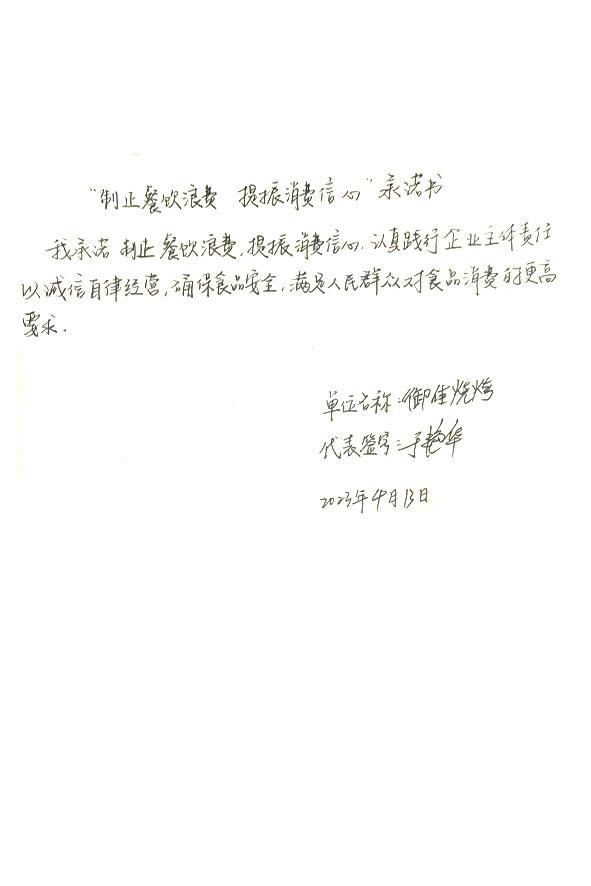 “制止餐饮浪费 提振消费信心”承诺书
我承诺 制止餐饮浪费，提振消费信心，认真践行企业主体责任
以诚信自律经营，确保食品安全，满足人民群众对食品消费的更高
要求.
单位名称：御佳烧烤
代表签字：于艳华
2023年4月13日